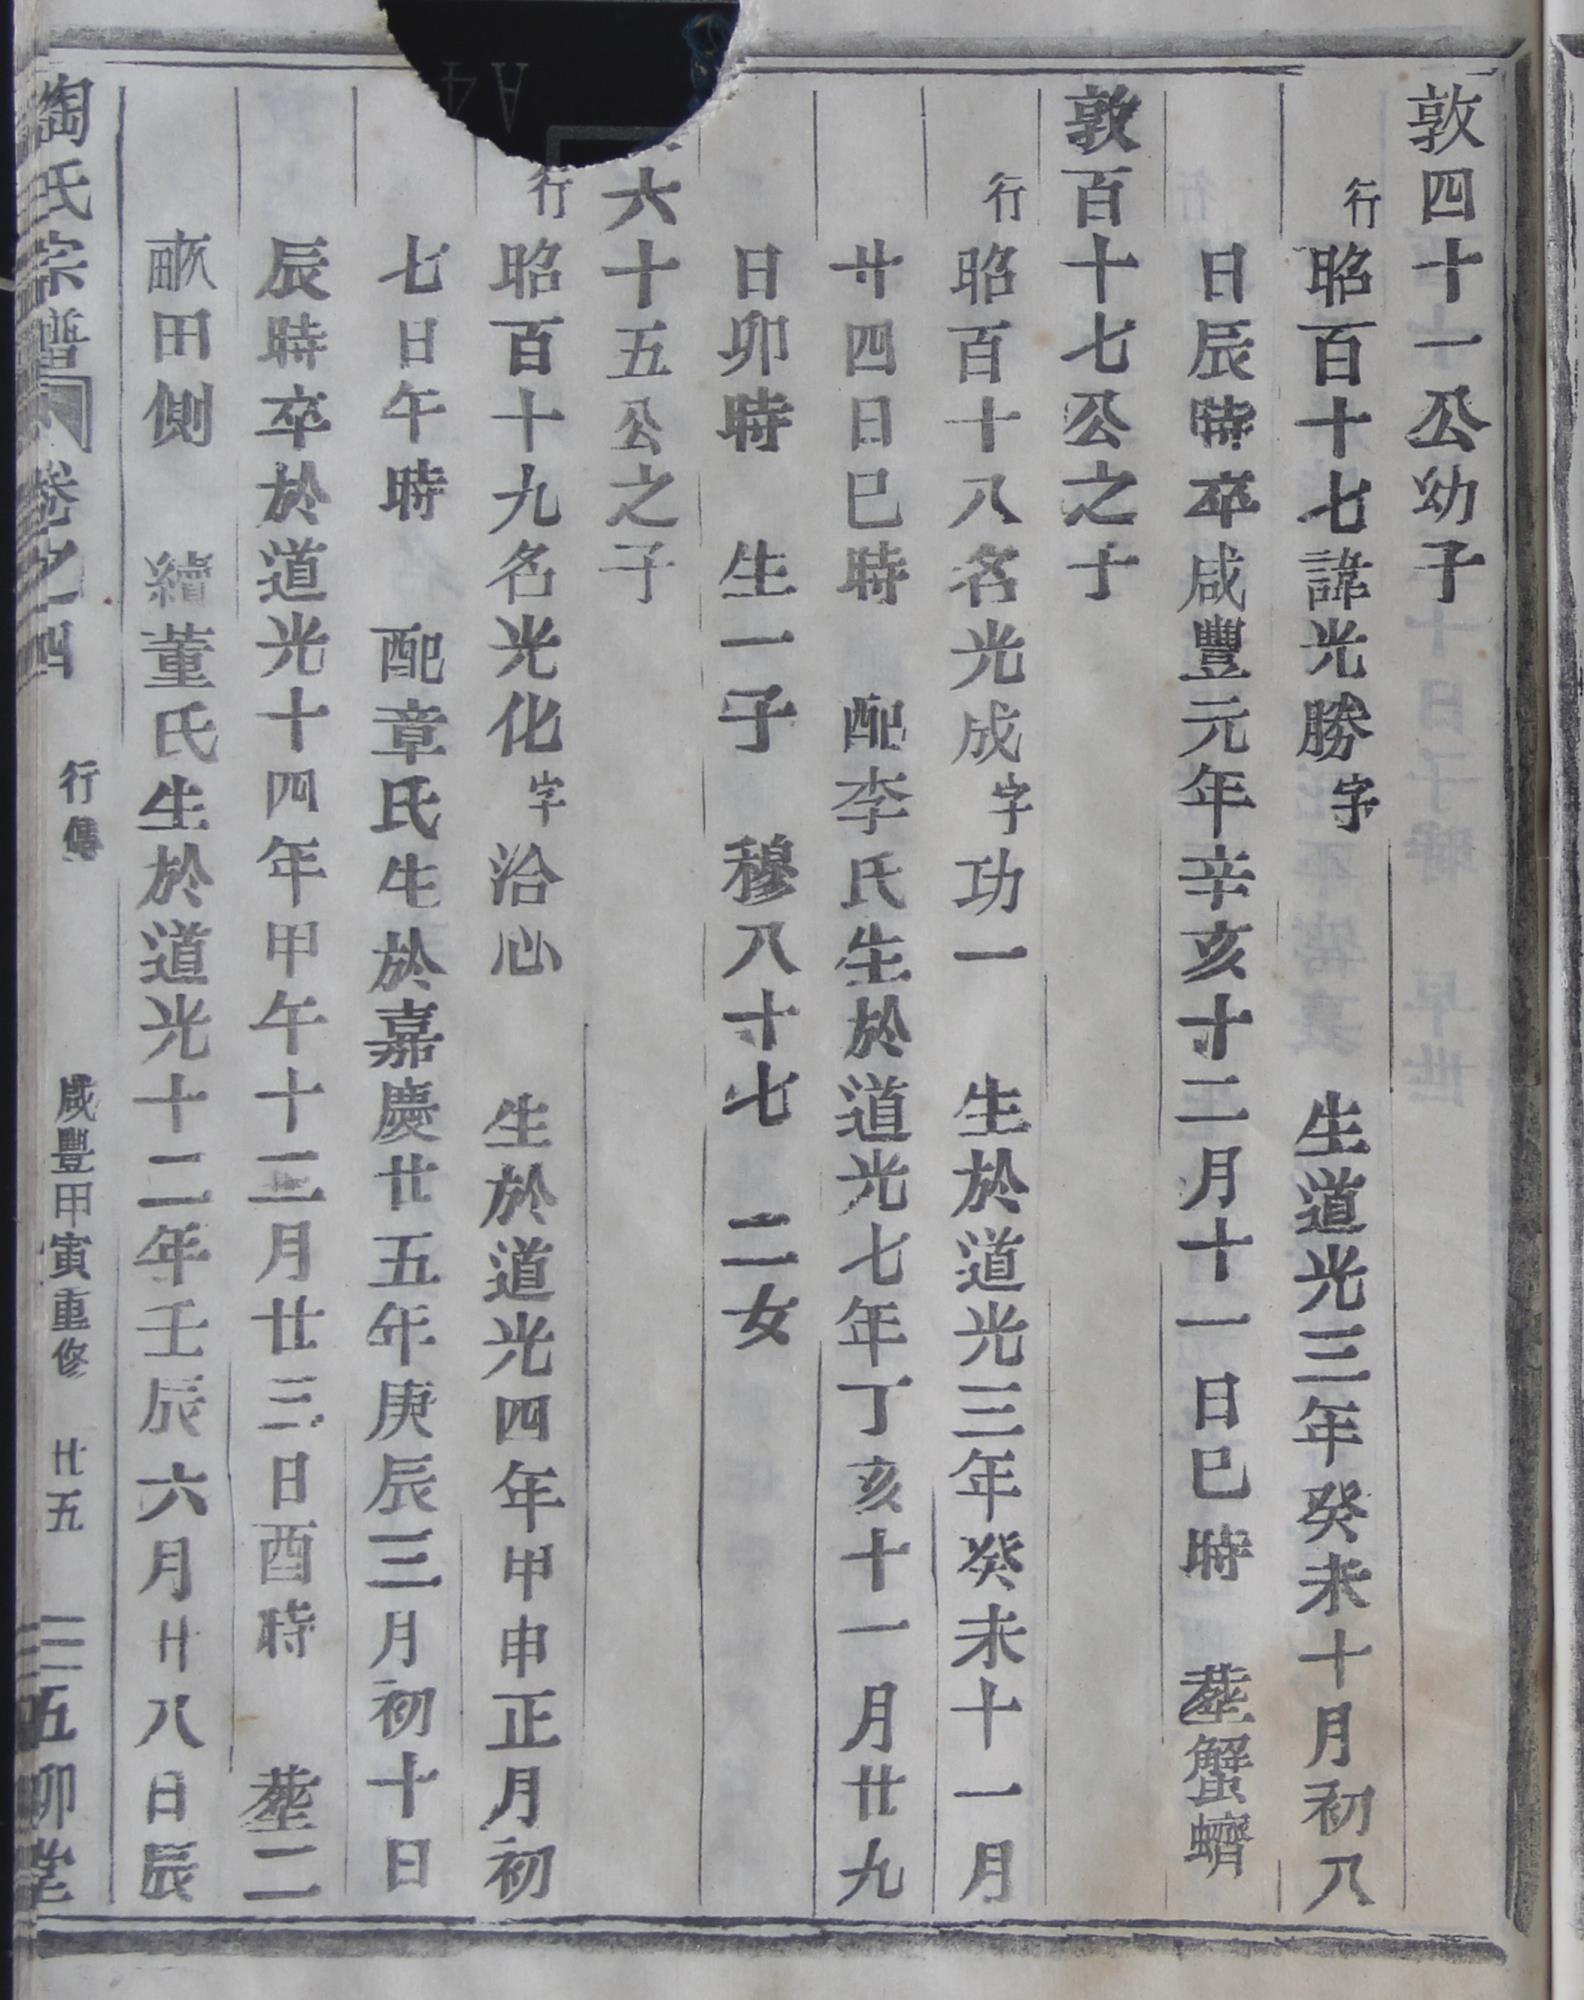 敦四十一公幼子
行昭百十七諱光勝字 生道光三年癸未十月初八
日辰時卒咸豐元年辛亥十二月十一日巳時 塟蟹蠐
敦百十七公之子
行昭百十八名光成字功一 生於道光三年癸未十一月
廿四日巳時 配李氏生於道光七年丁亥十一月廿九
日卯時 生一子 穆八十七 二女
六十五公之子
行昭百十九名光化字洽心 生於道光四年甲申正月初
七日午時 配章氏生於嘉慶廿五年庚辰三月初十日
辰時卒於道光十四年甲午十二月廿三日酉時 塟二
畝田側 續董氏生於道光十二年壬辰六月廿八日辰
陶氏宗譜 卷之四 行傳 咸豐甲寅重修 廿五 五柳堂
A4